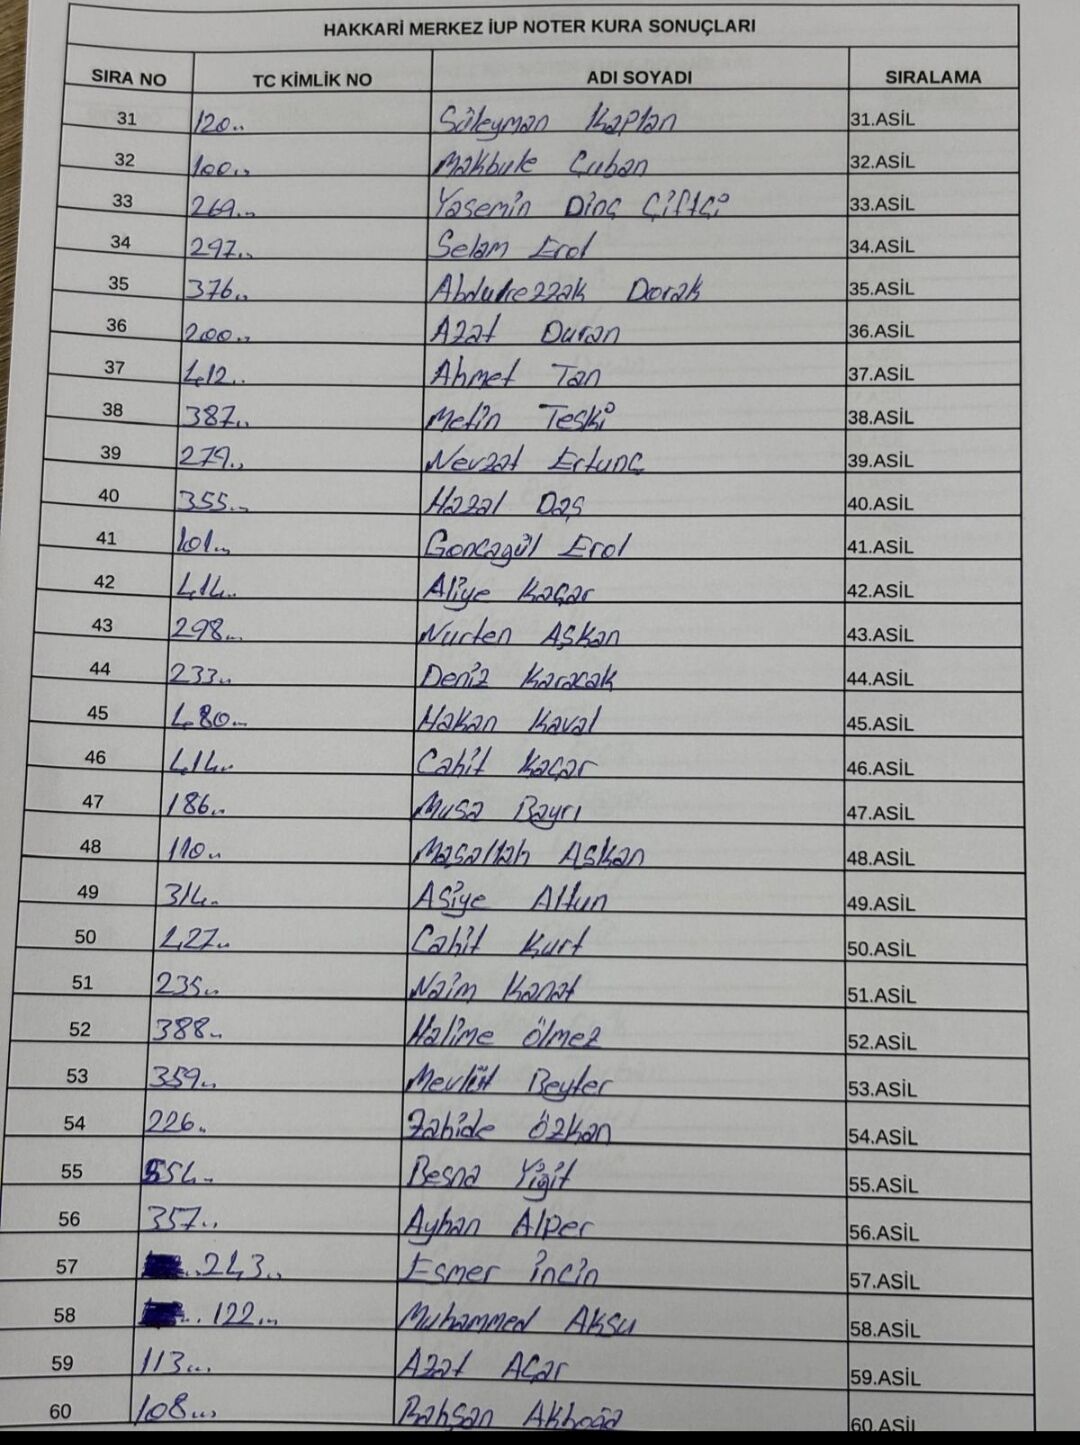 HAKKARİ MERKEZ İUP NOTER KURA SONUÇLARI
SIRA NO TC KİMLİK NO ADI SOYADI SIRALAMA
31 120.. Süleyman Kaplan 31.ASİL
32 100.. Makbule Çuban 32.ASİL
33 269... Yasemin Dinç Çiftçi 33.ASİL
34 297.. Selam Erol 34.ASİL
35 376.. Abdulrezzak Dorak 35.ASİL
36 200.. Azat Duran 36.ASİL
37 412.. Ahmet Tan 37.ASİL
38 387.. Metin Teski 38.ASİL
39 279.. Nevzat Ertunç 39.ASİL
40 355... Hazal Daş 40.ASİL
41 101... Goncagül Erol 41.ASİL
42 414.. Aliye Kaçar 42.ASİL
43 298... Nurten Aşkan 43.ASİL
44 233.. Deniz Karacak 44.ASİL
45 480... Hakan Kaval 45.ASİL
46 414.. Cahit Kaçar 46.ASİL
47 186.. Musa Bayrı 47.ASİL
48 110.. Maşallah Aşkan 48.ASİL
49 314.. Asiye Altun 49.ASİL
50 427.. Cahit Kurt 50.ASİL
51 235.. Naim Kanat 51.ASİL
52 388.. Halime Ölmez 52.ASİL
53 359.. Mevlüt Beyter 53.ASİL
54 226.. Zahide Özkan 54.ASİL
55 554.. Besna Yiğit 55.ASİL
56 357.. Ayhan Alper 56.ASİL
57 ..243.. Esmer İncin 57.ASİL
58 ..122... Muhammed Aksu 58.ASİL
59 113... Azat Açar 59.ASİL
60 108... Bahşan Akboğa 60.ASİL